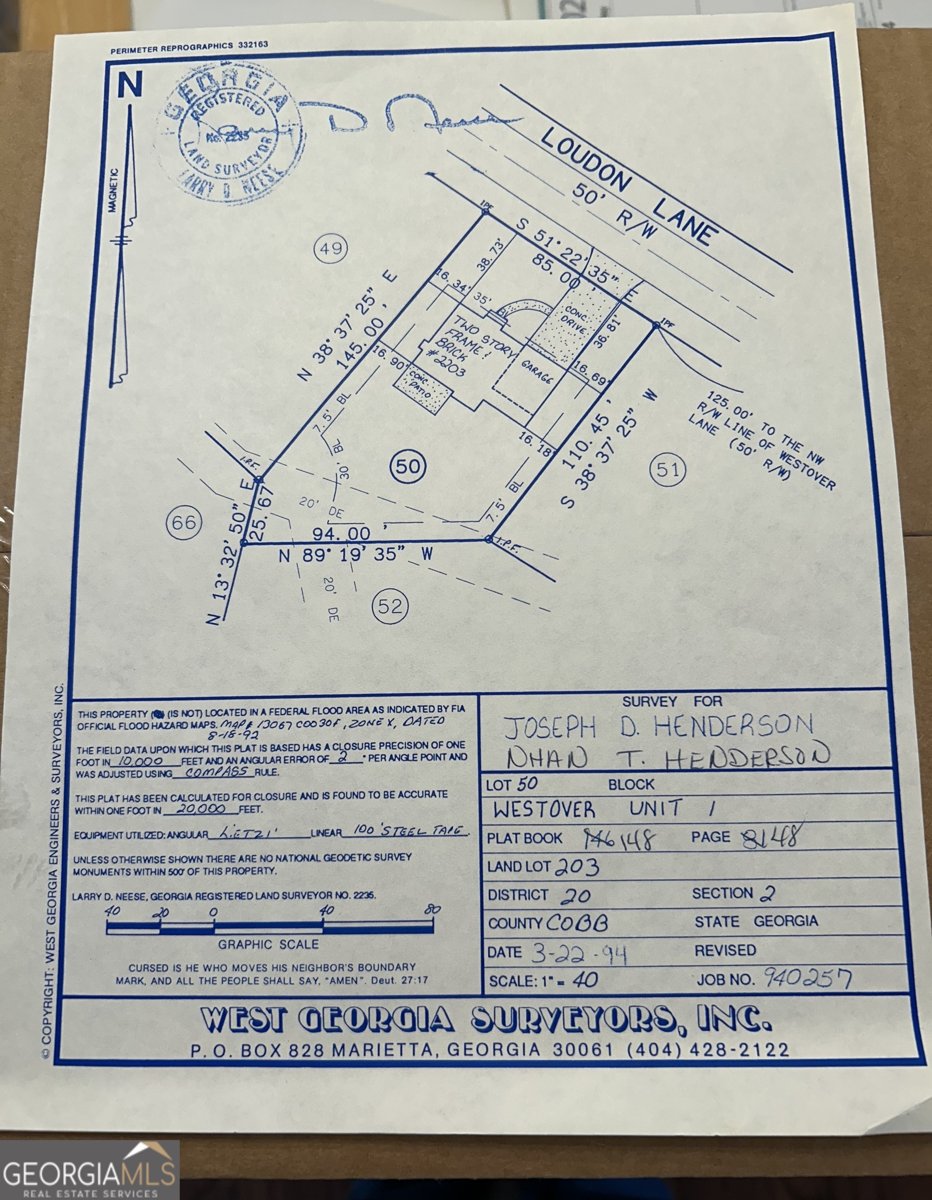 PERIMETER REPROGRAPHICS 332163
N
MAGNETIC
GEORGIA
REGISTERED
No. 2235
LAND SURVEYOR
LARRY D. NEESE
LOUDON LANE
50' R/W
IPF
S 51° 22' 35" E
85.00'
49
38.73'
16.34'
35'
BL
CONC. DRIVE
36.81'
IPF
N 38° 37' 25" E
145.00'
TWO STORY
FRAME &
BRICK
#2203
GARAGE
16.90'
CONC. PATIO
16.69'
16.18'
125.00' TO THE NW
R/W LINE OF WESTOVER
LANE (50' R/W)
110.45'
S 38° 37' 25" W
51
7.5' BL
30' BL
50
7.5' BL
I.P.F.
20' DE
66
N 13° 32' 50" E
25.67'
94.00'
N 89° 19' 35" W
I.P.F.
20' DE
52
THIS PROPERTY (IS NOT) LOCATED IN A FEDERAL FLOOD AREA AS INDICATED BY FIA
OFFICIAL FLOOD HAZARD MAPS. MAP# 13067 C0030F, ZONE X, DATED
8-18-92
THE FIELD DATA UPON WHICH THIS PLAT IS BASED HAS A CLOSURE PRECISION OF ONE
FOOT IN 10,000 FEET AND AN ANGULAR ERROR OF 2 " PER ANGLE POINT AND
WAS ADJUSTED USING COMPASS RULE.
THIS PLAT HAS BEEN CALCULATED FOR CLOSURE AND IS FOUND TO BE ACCURATE
WITHIN ONE FOOT IN 20,000 FEET.
EQUIPMENT UTILIZED: ANGULAR LIETZ LINEAR 100' STEEL TAPE
UNLESS OTHERWISE SHOWN THERE ARE NO NATIONAL GEODETIC SURVEY
MONUMENTS WITHIN 500' OF THIS PROPERTY.
LARRY D. NEESE, GEORGIA REGISTERED LAND SURVEYOR NO. 2235.
40 20 0 40 80
GRAPHIC SCALE
CURSED IS HE WHO MOVES HIS NEIGHBOR'S BOUNDARY
MARK, AND ALL THE PEOPLE SHALL SAY, "AMEN". Deut. 27:17
SURVEY FOR
JOSEPH D. HENDERSON
NHAN T. HENDERSON
LOT 50 BLOCK
WESTOVER UNIT 1
PLAT BOOK 148 PAGE 48
LAND LOT 203
DISTRICT 20 SECTION 2
COUNTY COBB STATE GEORGIA
DATE 3-22-94 REVISED
SCALE: 1" = 40 JOB NO. 940257
WEST GEORGIA SURVEYORS, INC.
P. O. BOX 828 MARIETTA, GEORGIA 30061 (404) 428-2122
© COPYRIGHT: WEST GEORGIA ENGINEERS & SURVEYORS, INC.
GEORGIAMLS
REAL ESTATE SERVICES